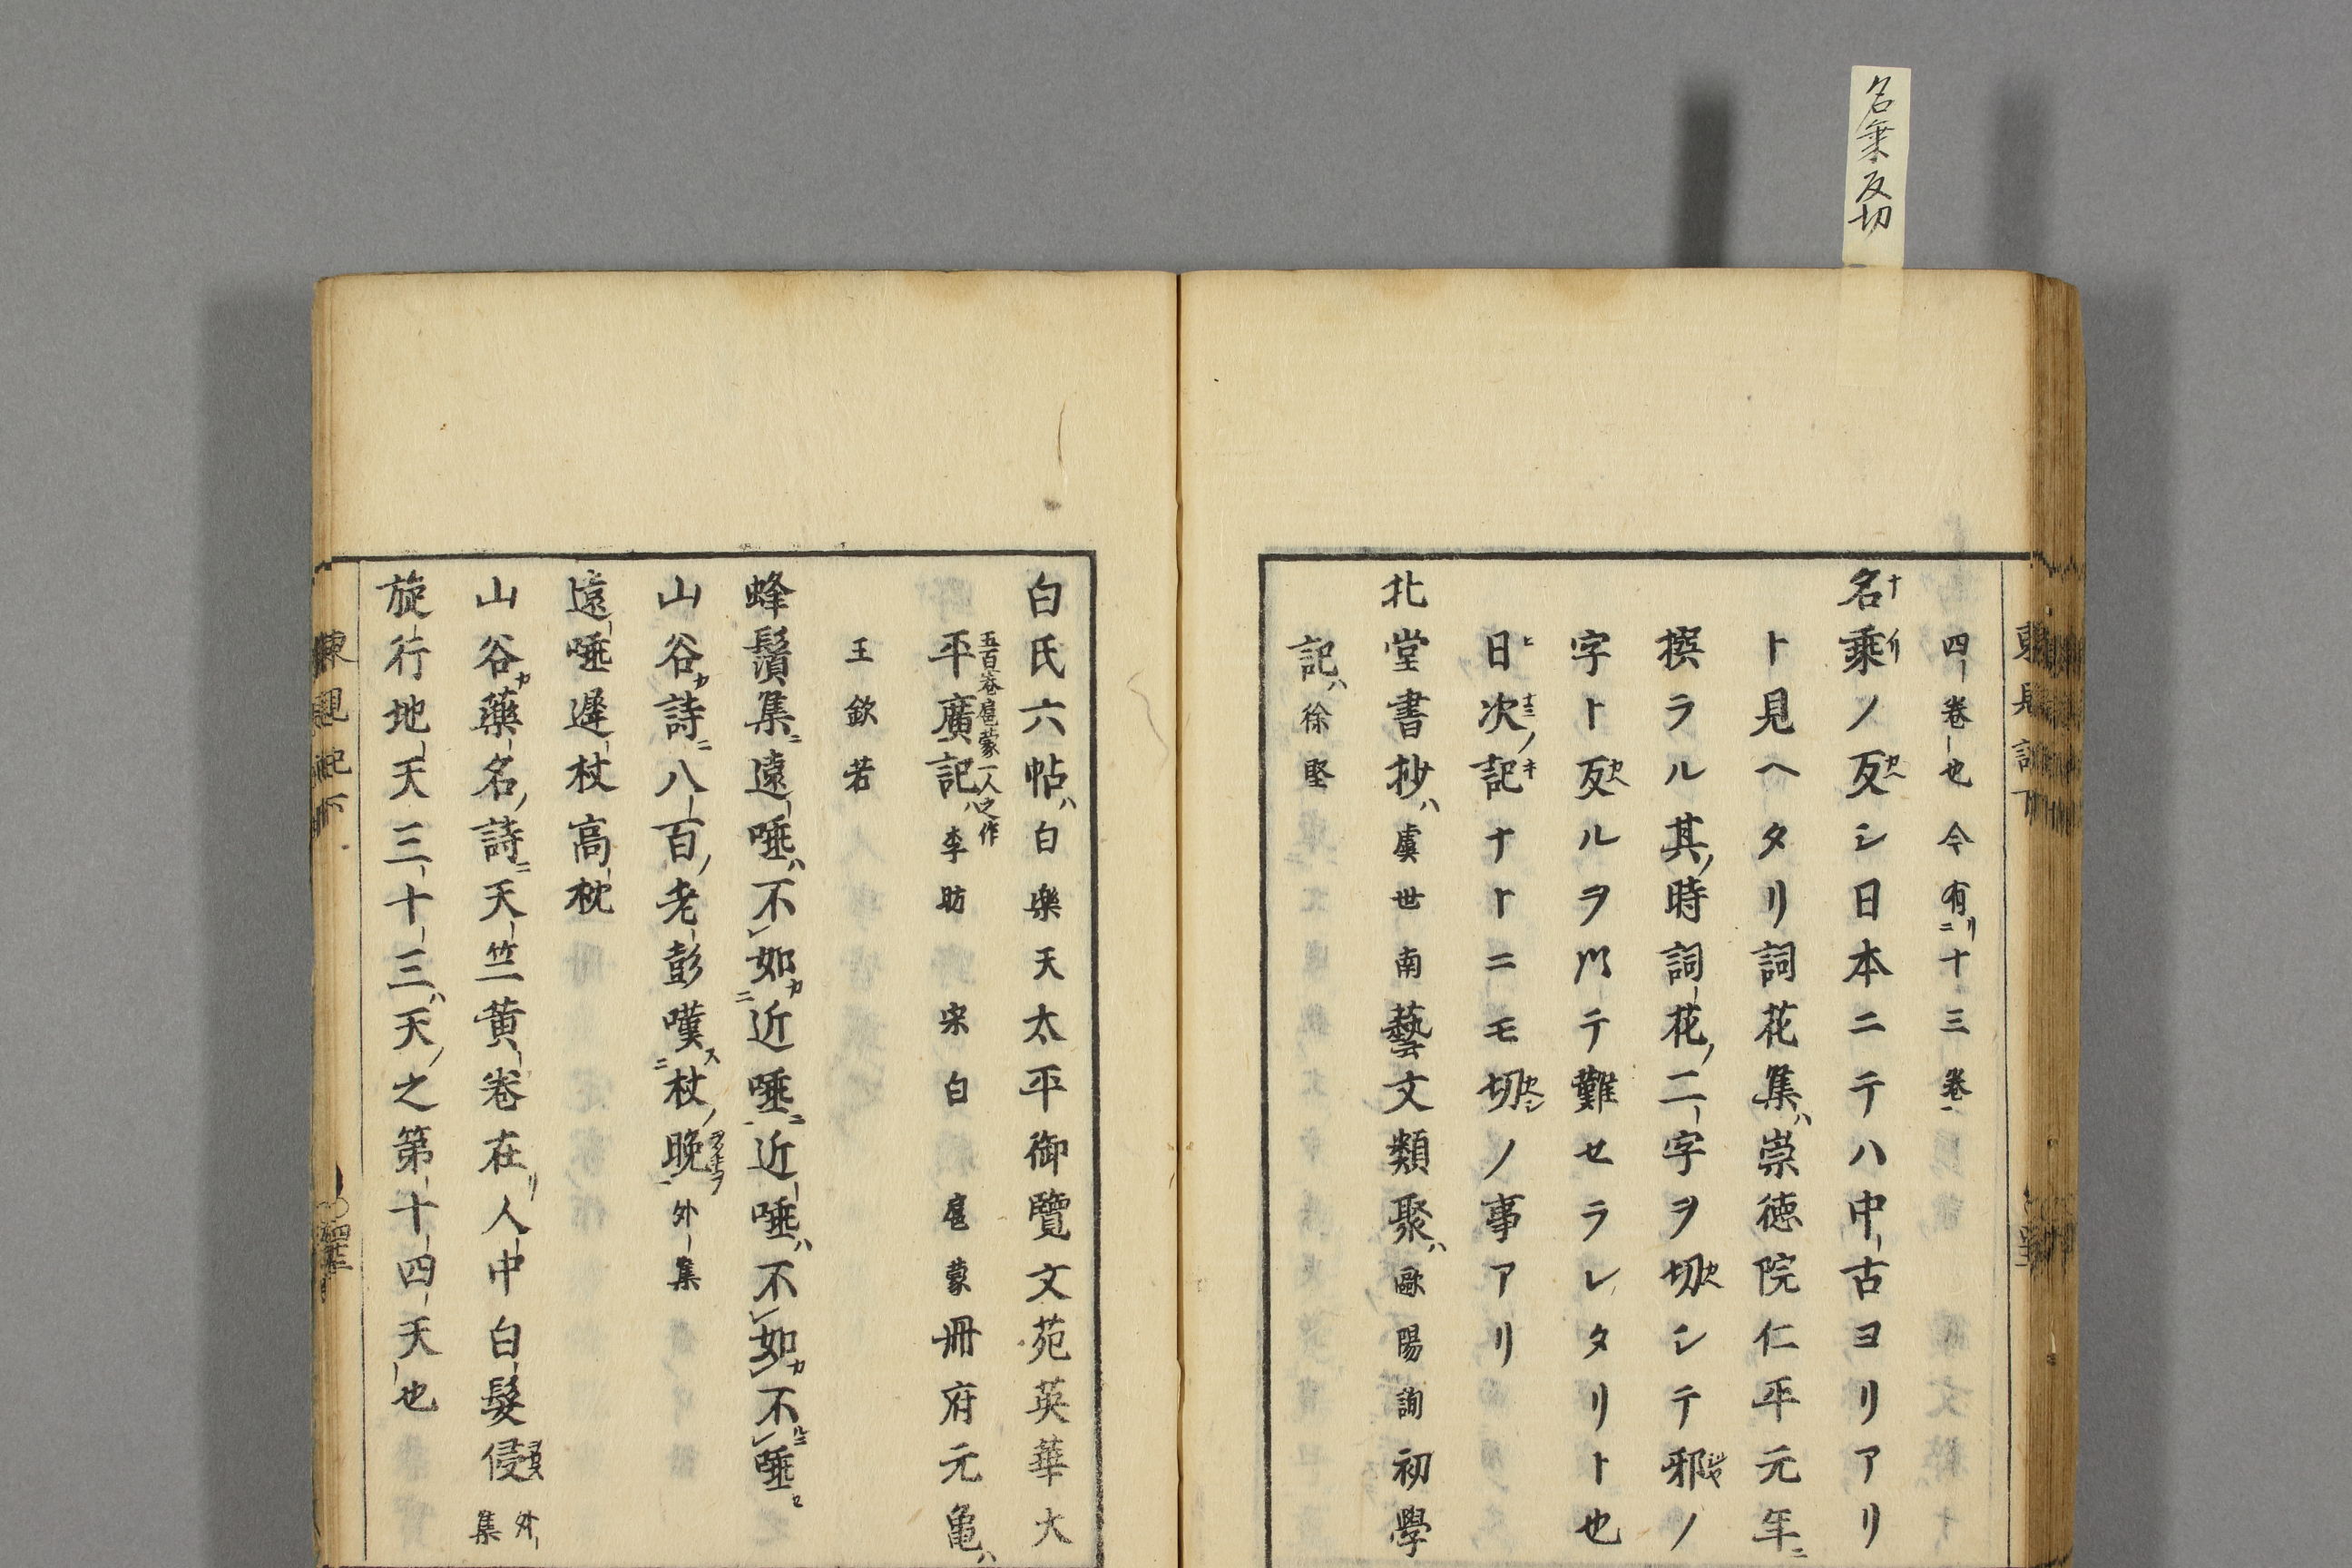 名乗反切
四卷也今有十三卷
名乘ノ反シ日本ニテハ中古ヨリアリ
ト見ヘタリ詞花集ハ崇徳院仁平元年ニ
撰ラル其時詞花ノ二字ヲ切シテ邪ノ
字ト反ルヲ以テ難セラレタリト也
日次ノ記ナトニモ切ノ事アリ
北堂書抄ハ虞世南藝文類聚ハ歐陽詢初學
記ハ徐堅
白氏六帖ハ白樂天太平御覽文苑英華太
五百卷扈蒙一人之作
平廣記ハ李昉宋白扈蒙冊府元亀ハ
王欽若
蜂鬚集ニ遠唾ハ不如近唾近唾ハ不如不唾
山谷カ詩ニ八百ノ老彭嘆杖晩外集
遠唾遲杖高枕
山谷カ藥名ノ詩ニ天竺黄卷在人中白髮侵外集
旋行地天三十三ハ天ノ之第十四天也